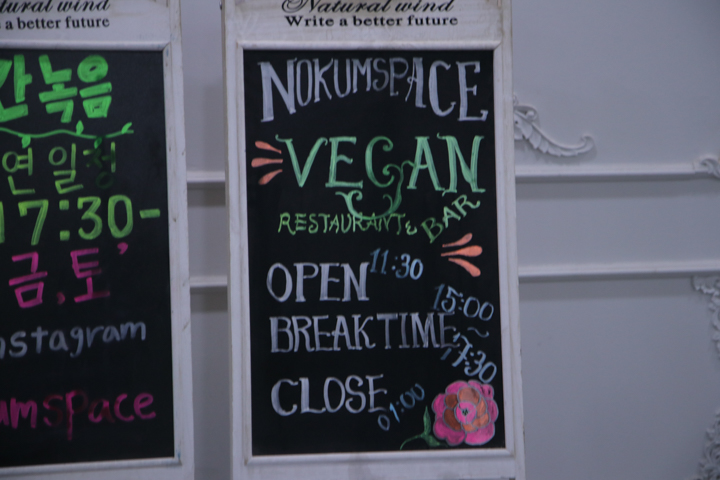 Natural wind
Write a better future
간녹음
연일정
17:30-
금,토'
nstagram
umspace
Natural wind
Write a better future
NOKUMSPACE
VEGAN
RESTAURANT & BAR
OPEN 11:30
BREAKTIME 15:00~17:30
CLOSE 01:00